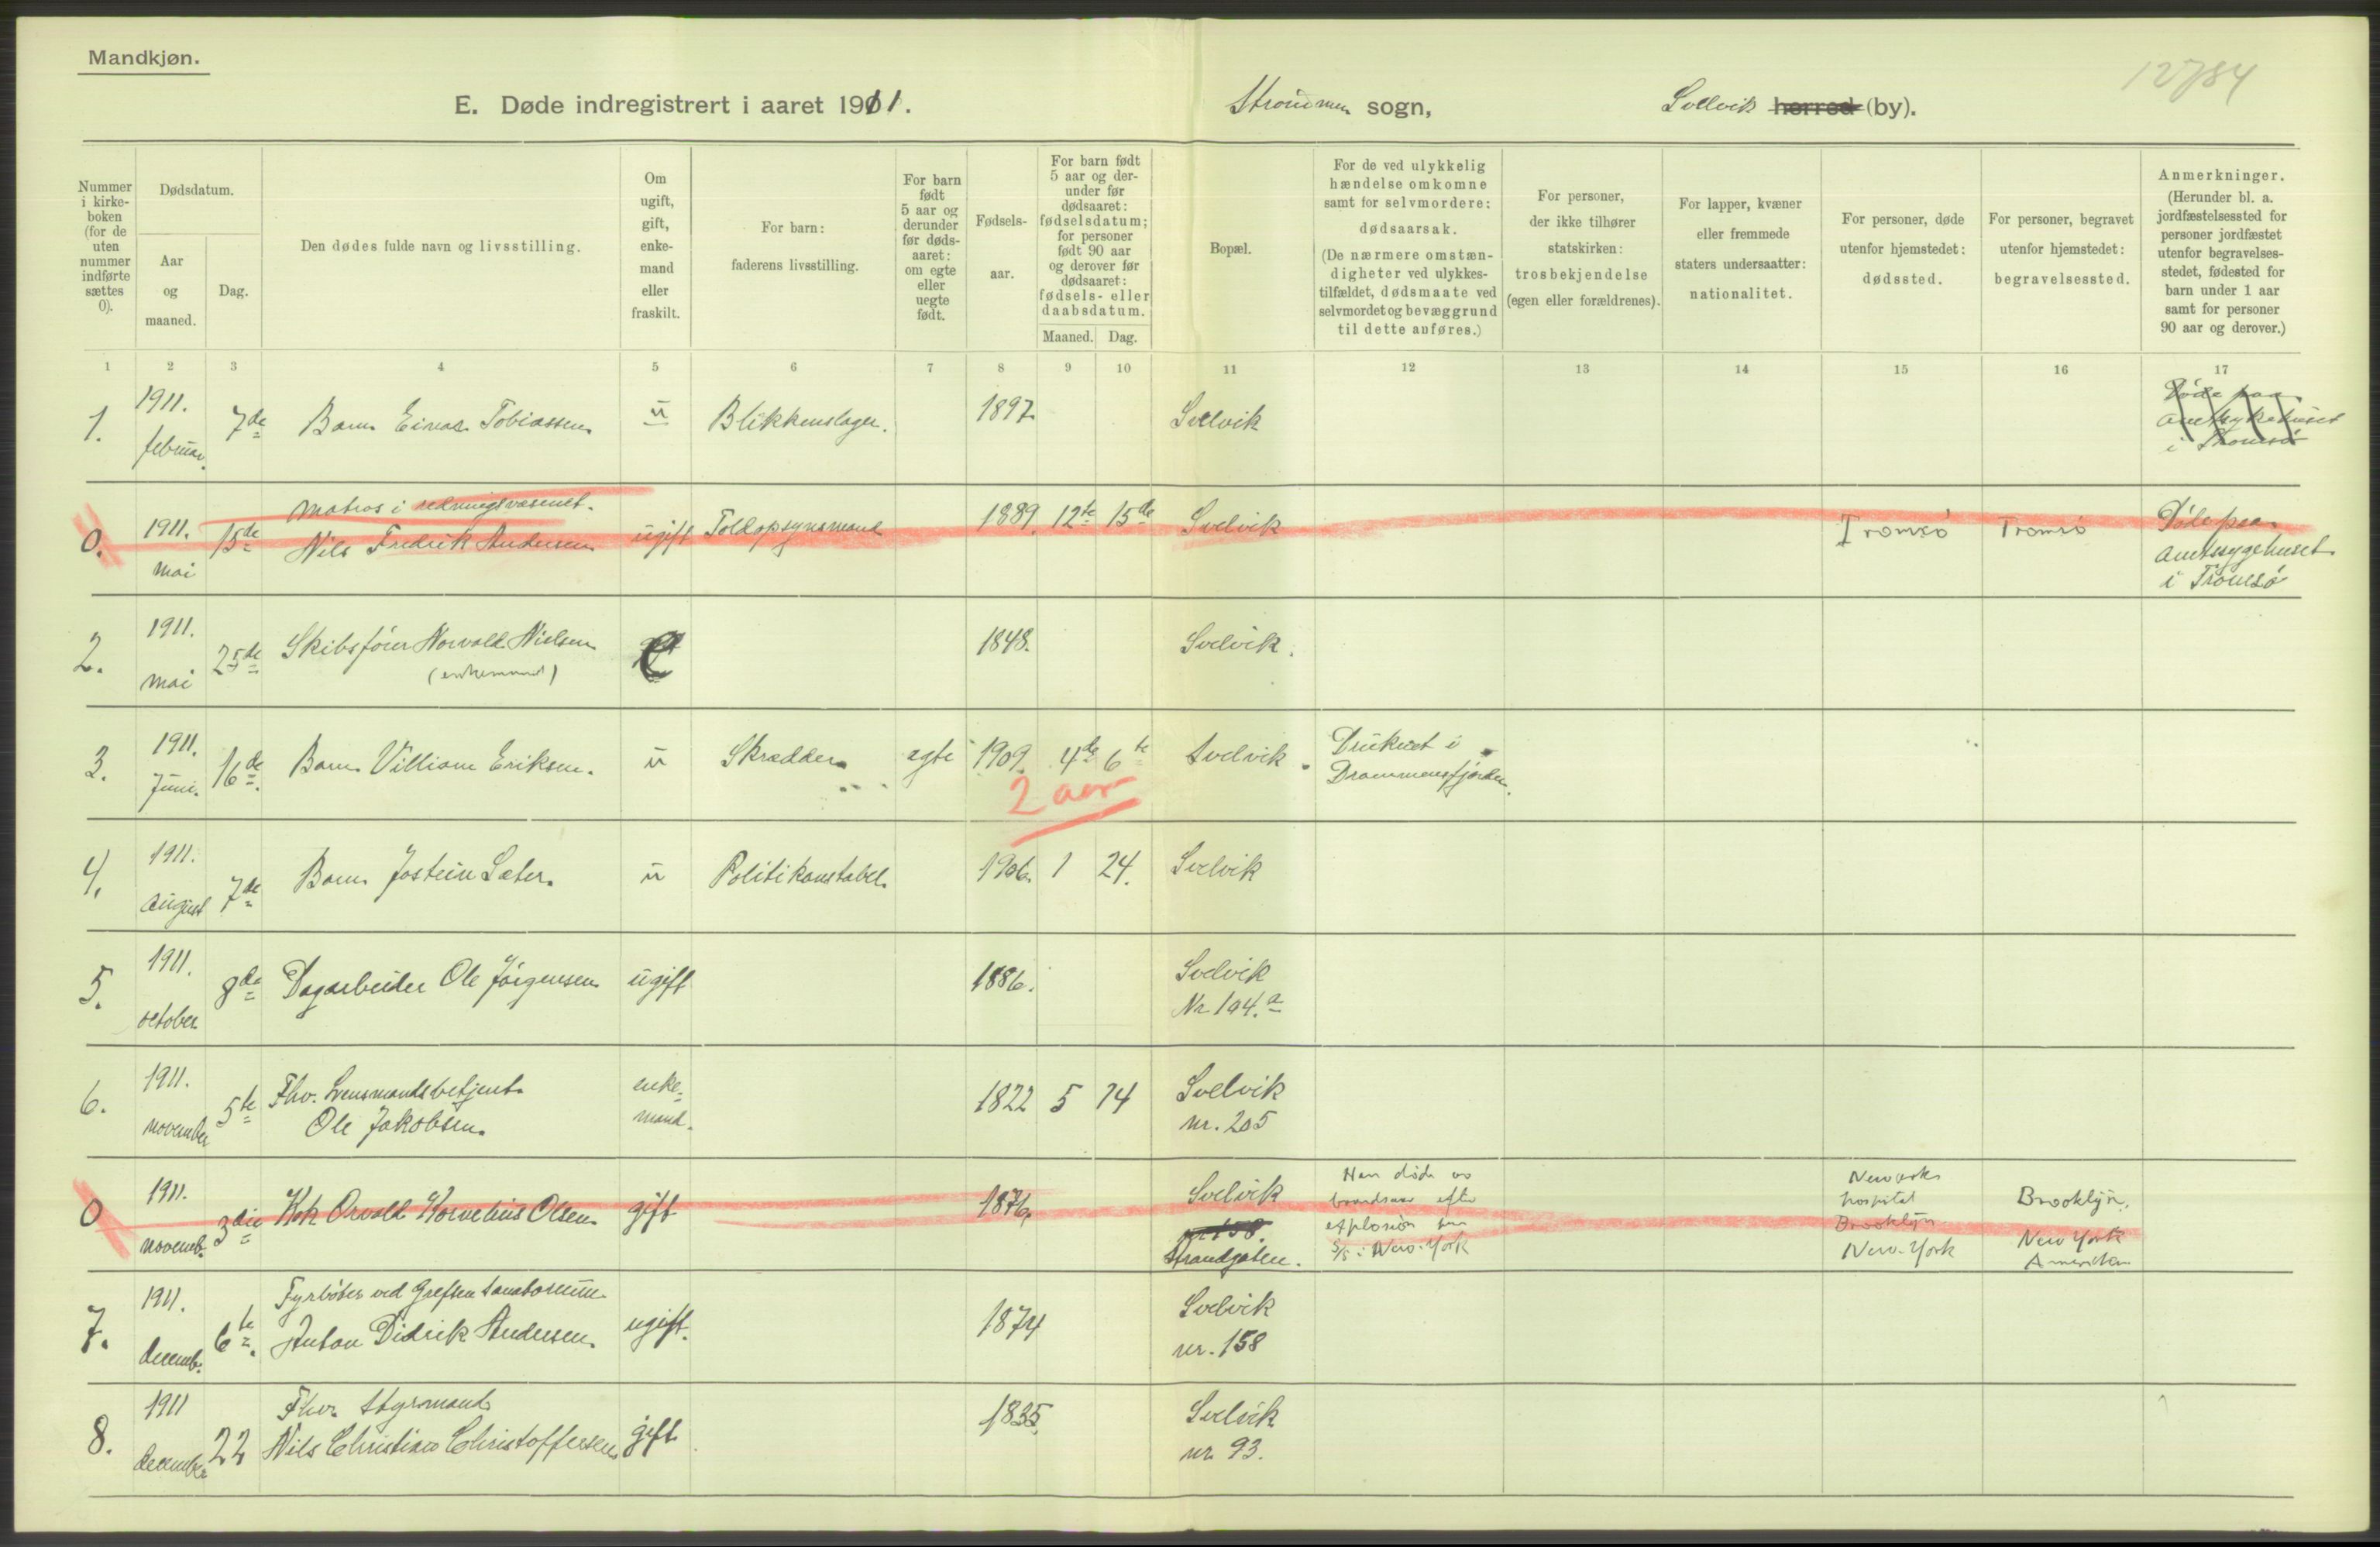 Mandkjøn.
12784
E. Døde indregistrert i aaret 1911.
Strømmen sogn,
Svelvik herred (by).
Nummer i kirke-boken (for de uten nummer indførte sættes 0).
Dødsdatum.
Aar og maaned.
Dag.
Den dødes fulde navn og livsstilling.
Om ugift, gift, enke-mand eller fraskilt.
For barn: faderens livsstilling.
For barn født 5 aar og derunder før døds-aaret: om egte eller uegte født.
Fødsels-aar.
For barn født 5 aar og der-under før dødsaaret: fødselsdatum; for personer født 90 aar og derover før dødsaaret: fødsels- eller daabsdatum.
Maaned. Dag.
Bopæl.
For de ved ulykkelig hændelse omkomne samt for selvmordere: dødsaarsak. (De nærmere omstæn-digheter ved ulykkes-tilfældet, dødsmaate ved selvmordet og bevæggrund til dette anføres.)
For personer, der ikke tilhører statskirken: trosbekjendelse (egen eller forældrenes).
For lapper, kvæner eller fremmede staters undersaatter: nationalitet.
For personer, døde utenfor hjemstedet: dødssted.
For personer, begravet utenfor hjemstedet: begravelsessted.
Anmerkninger. (Herunder bl. a. jordfæstelsessted for personer jordfæstet utenfor begravelses-stedet, fødested for barn under 1 aar samt for personer 90 aar og derover.)
1 2 3 4 5 6 7 8 9 10 11 12 13 14 15 16 17
1. 1911. februar. 7de Barn Einar Tobiassen. u Blikkenslager. 1897. Svelvik
Døde paa
Amtssykehuset
i Tromsø
0. 1911. mai 15de Matros i redningsvæsenet.
Nils Fredrik Andersen ugift Toldopsynsmand 1889. 12te 15de Svelvik Tromsø Tromsø
Døde paa
Amtssygehuset
i Tromsø
2. 1911. mai 25de Skibsfører Norvald Nielsen
(enkemand) e 1848. Svelvik.
3. 1911. Juni. 16de Barn Villiam Eriksen. u Skrædder egte 1909. 4de 6te Svelvik
Druknet i
Drammensfjorden.
2 aar
4. 1911. August 7de Barn Jostein Sæter. u Politikonstabel 1906. 1 24. Svelvik
5. 1911. october 8de Dagarbeider Ole Jørgensen ugift 1886. Svelvik
Nr 104.a
6. 1911. november 5te Fhv. Lensmandsbetjent
Ole Jakobsen. enke-
mand. 1822 5 14 Svelvik
nr. 205
0 1911. novemb. 3die Kok Orvald Kornelius Olsen gift 1876. Svelvik
nr 158.
Strandgaten.
Han døde av
brandsaar efter
explosion
S/S i New-York
hospital
Brooklyn
New-York
Brooklyn.
New York
Amerika
7. 1911. decemb. 6te. Fyrbøter ved Grefsen Sanatorium
Anton Didrik Andersen. ugift. 1874 Svelvik
nr. 158
8. 1911 december 22 Fhv. Styrmand
Nils Christian Christoffersen gift 1835. Svelvik
nr. 93.